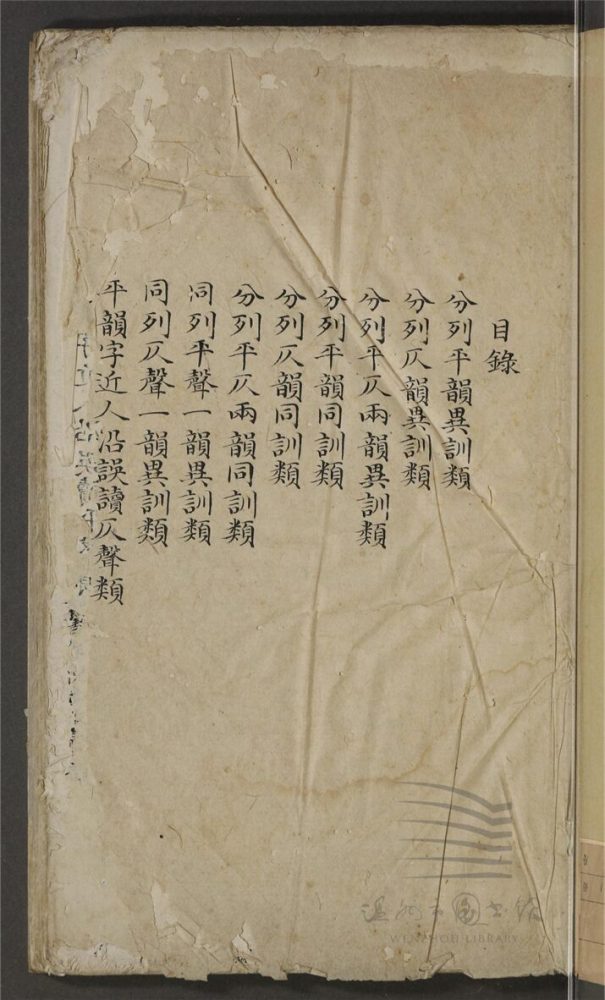 目錄
分列平韻異訓類
分列仄韻異訓類
分列平仄兩韻異訓類
分列平韻同訓類
分列仄韻同訓類
分列平仄兩韻同訓類
同列平聲一韻異訓類
同列仄聲一韻異訓類
平韻字近人沿誤讀仄聲類
温州市图书馆
WENZHOU LIBRARY